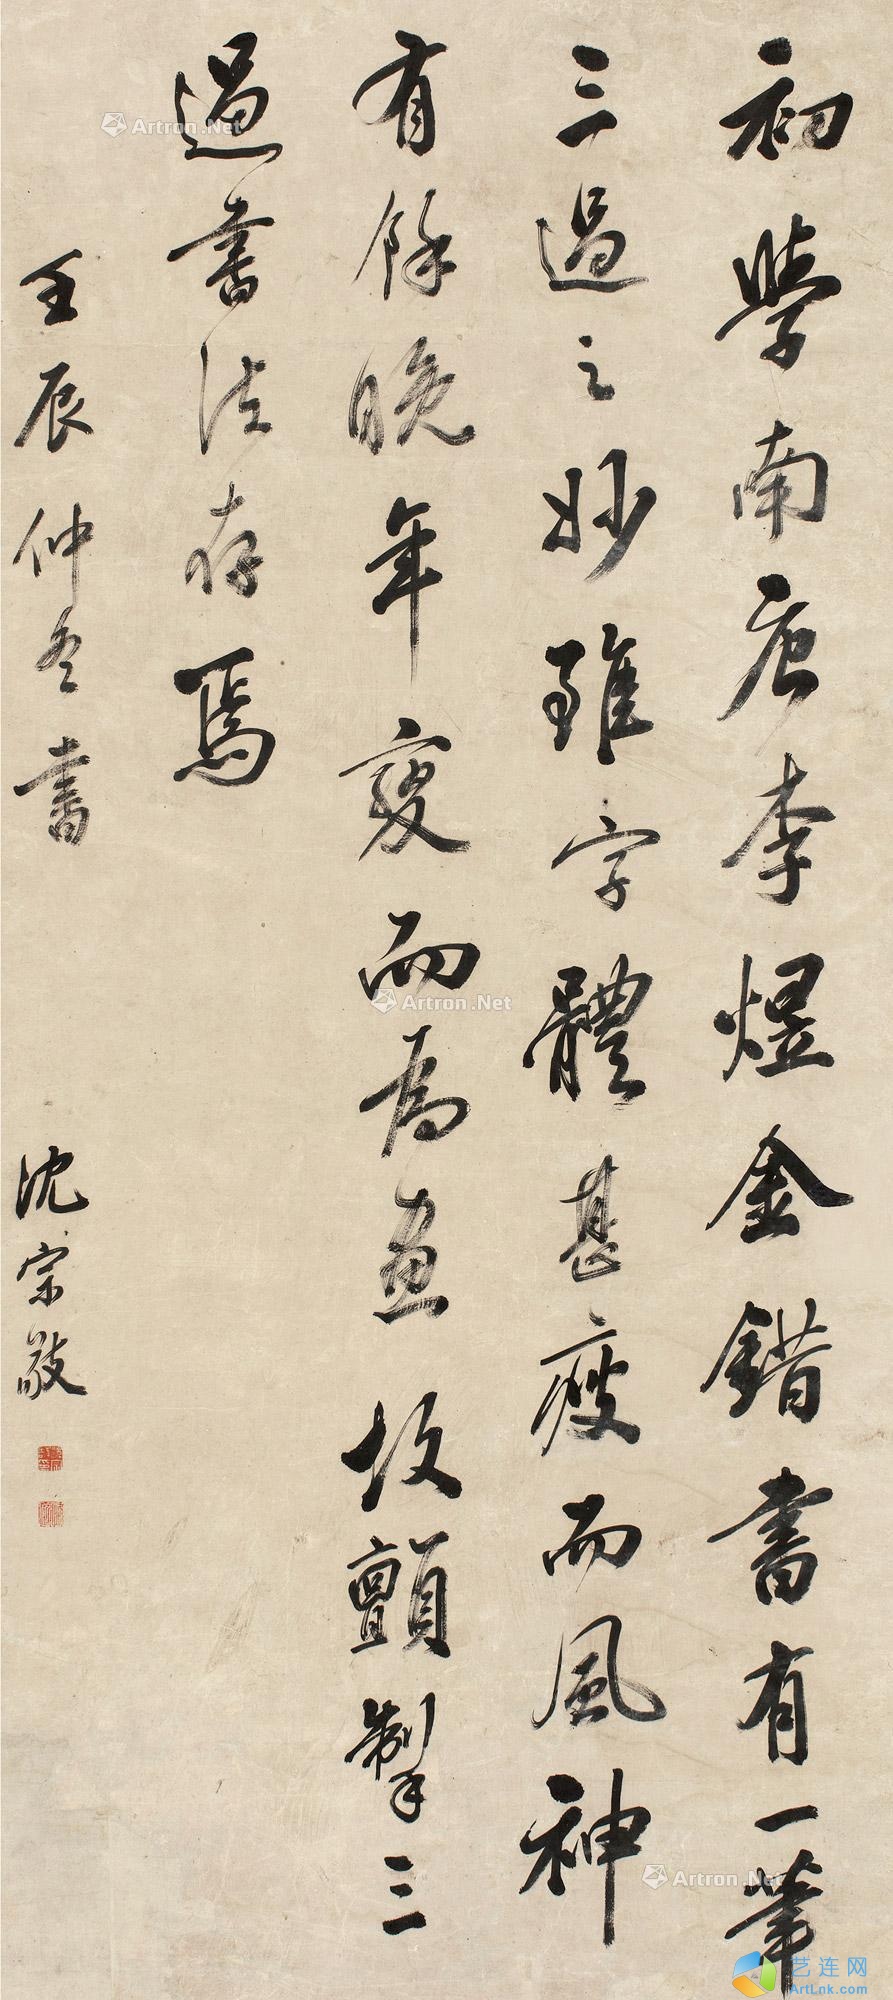 初學南唐李煜金錯書有一筆
三過之妙雖字體甚瘦而風神
有餘晚年變而為畫故顫掣三
過書法存焉
壬辰仲冬書
沈宗敬
Artron.Net
Artron.Net
Artron.Net
艺连网
ArtLnk.com